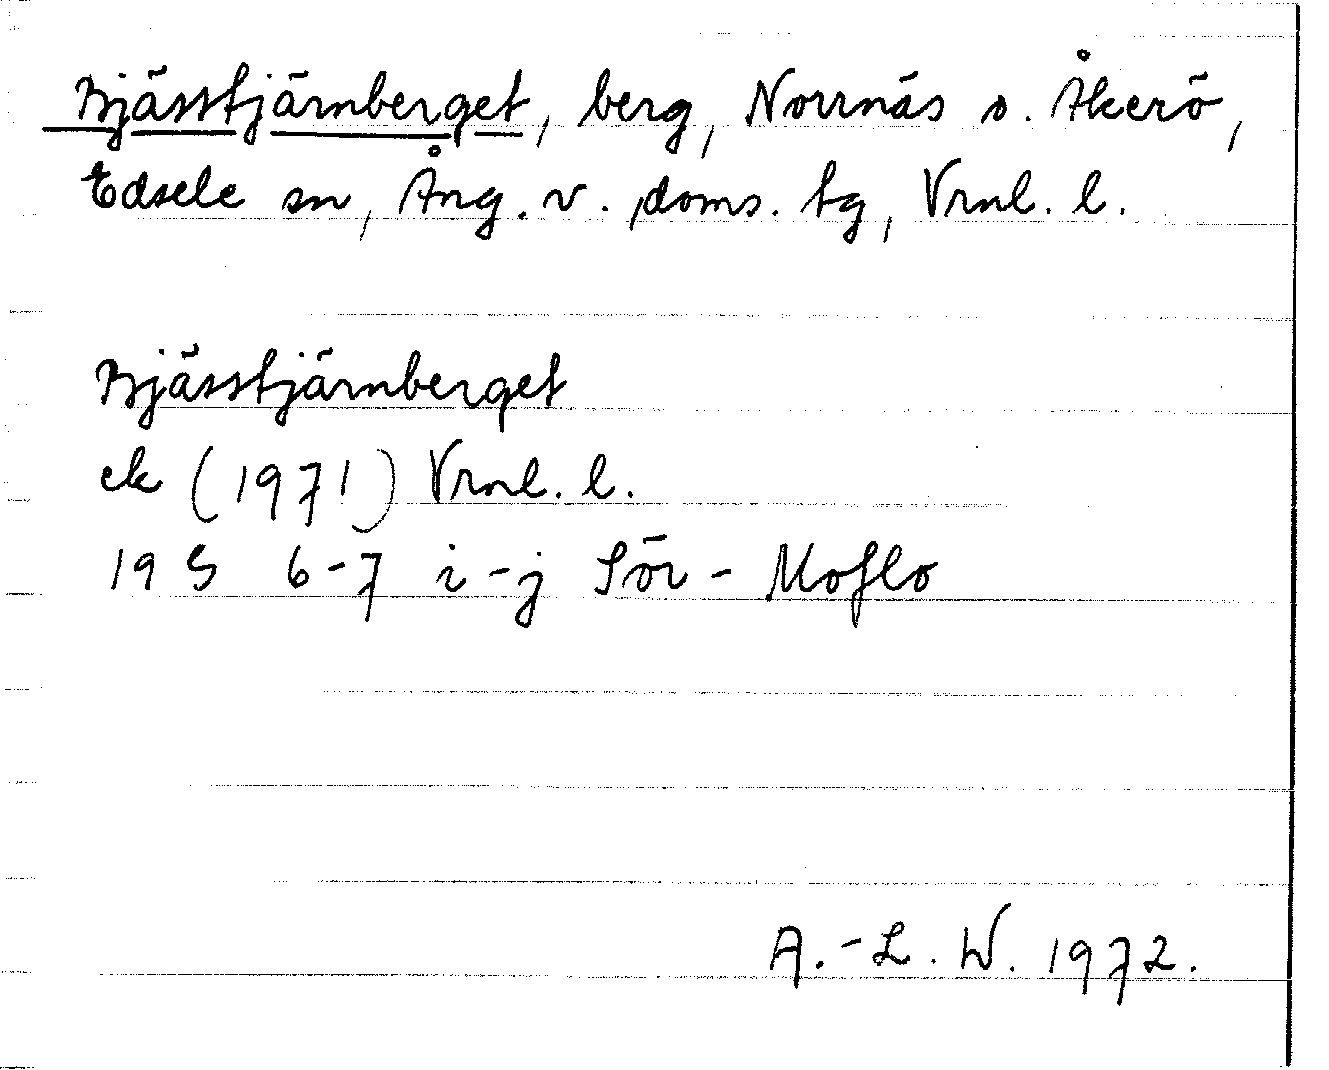 Bjässtjärnberget, berg, Norrnäs o. Åkerö,
Edsele sn, Ång. v. doms. tg, Vrnl. l.
Bjässtjärnberget
ek (1971) Vrnl. l.
19 G 6-7 i-j Sör-Moflo
A.-L. W. 1972.